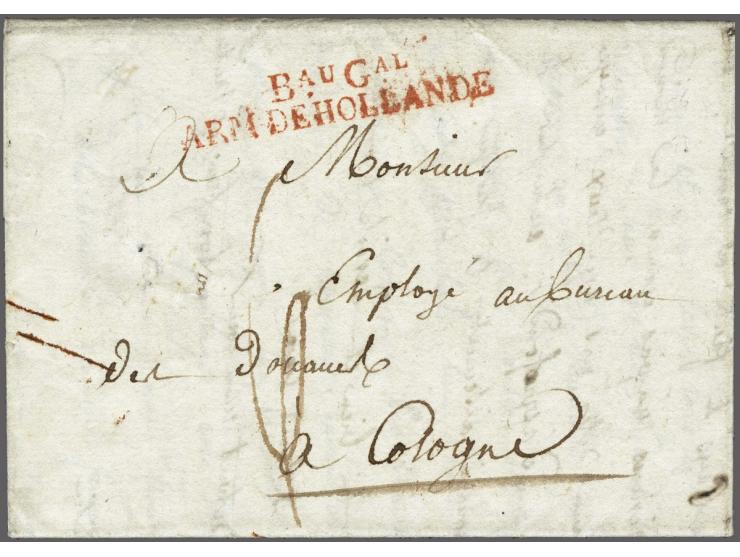 BAU GAL
ARM. DE HOLLANDE
A Monsieur
Employé au bureau
des Douanes
à Cologne